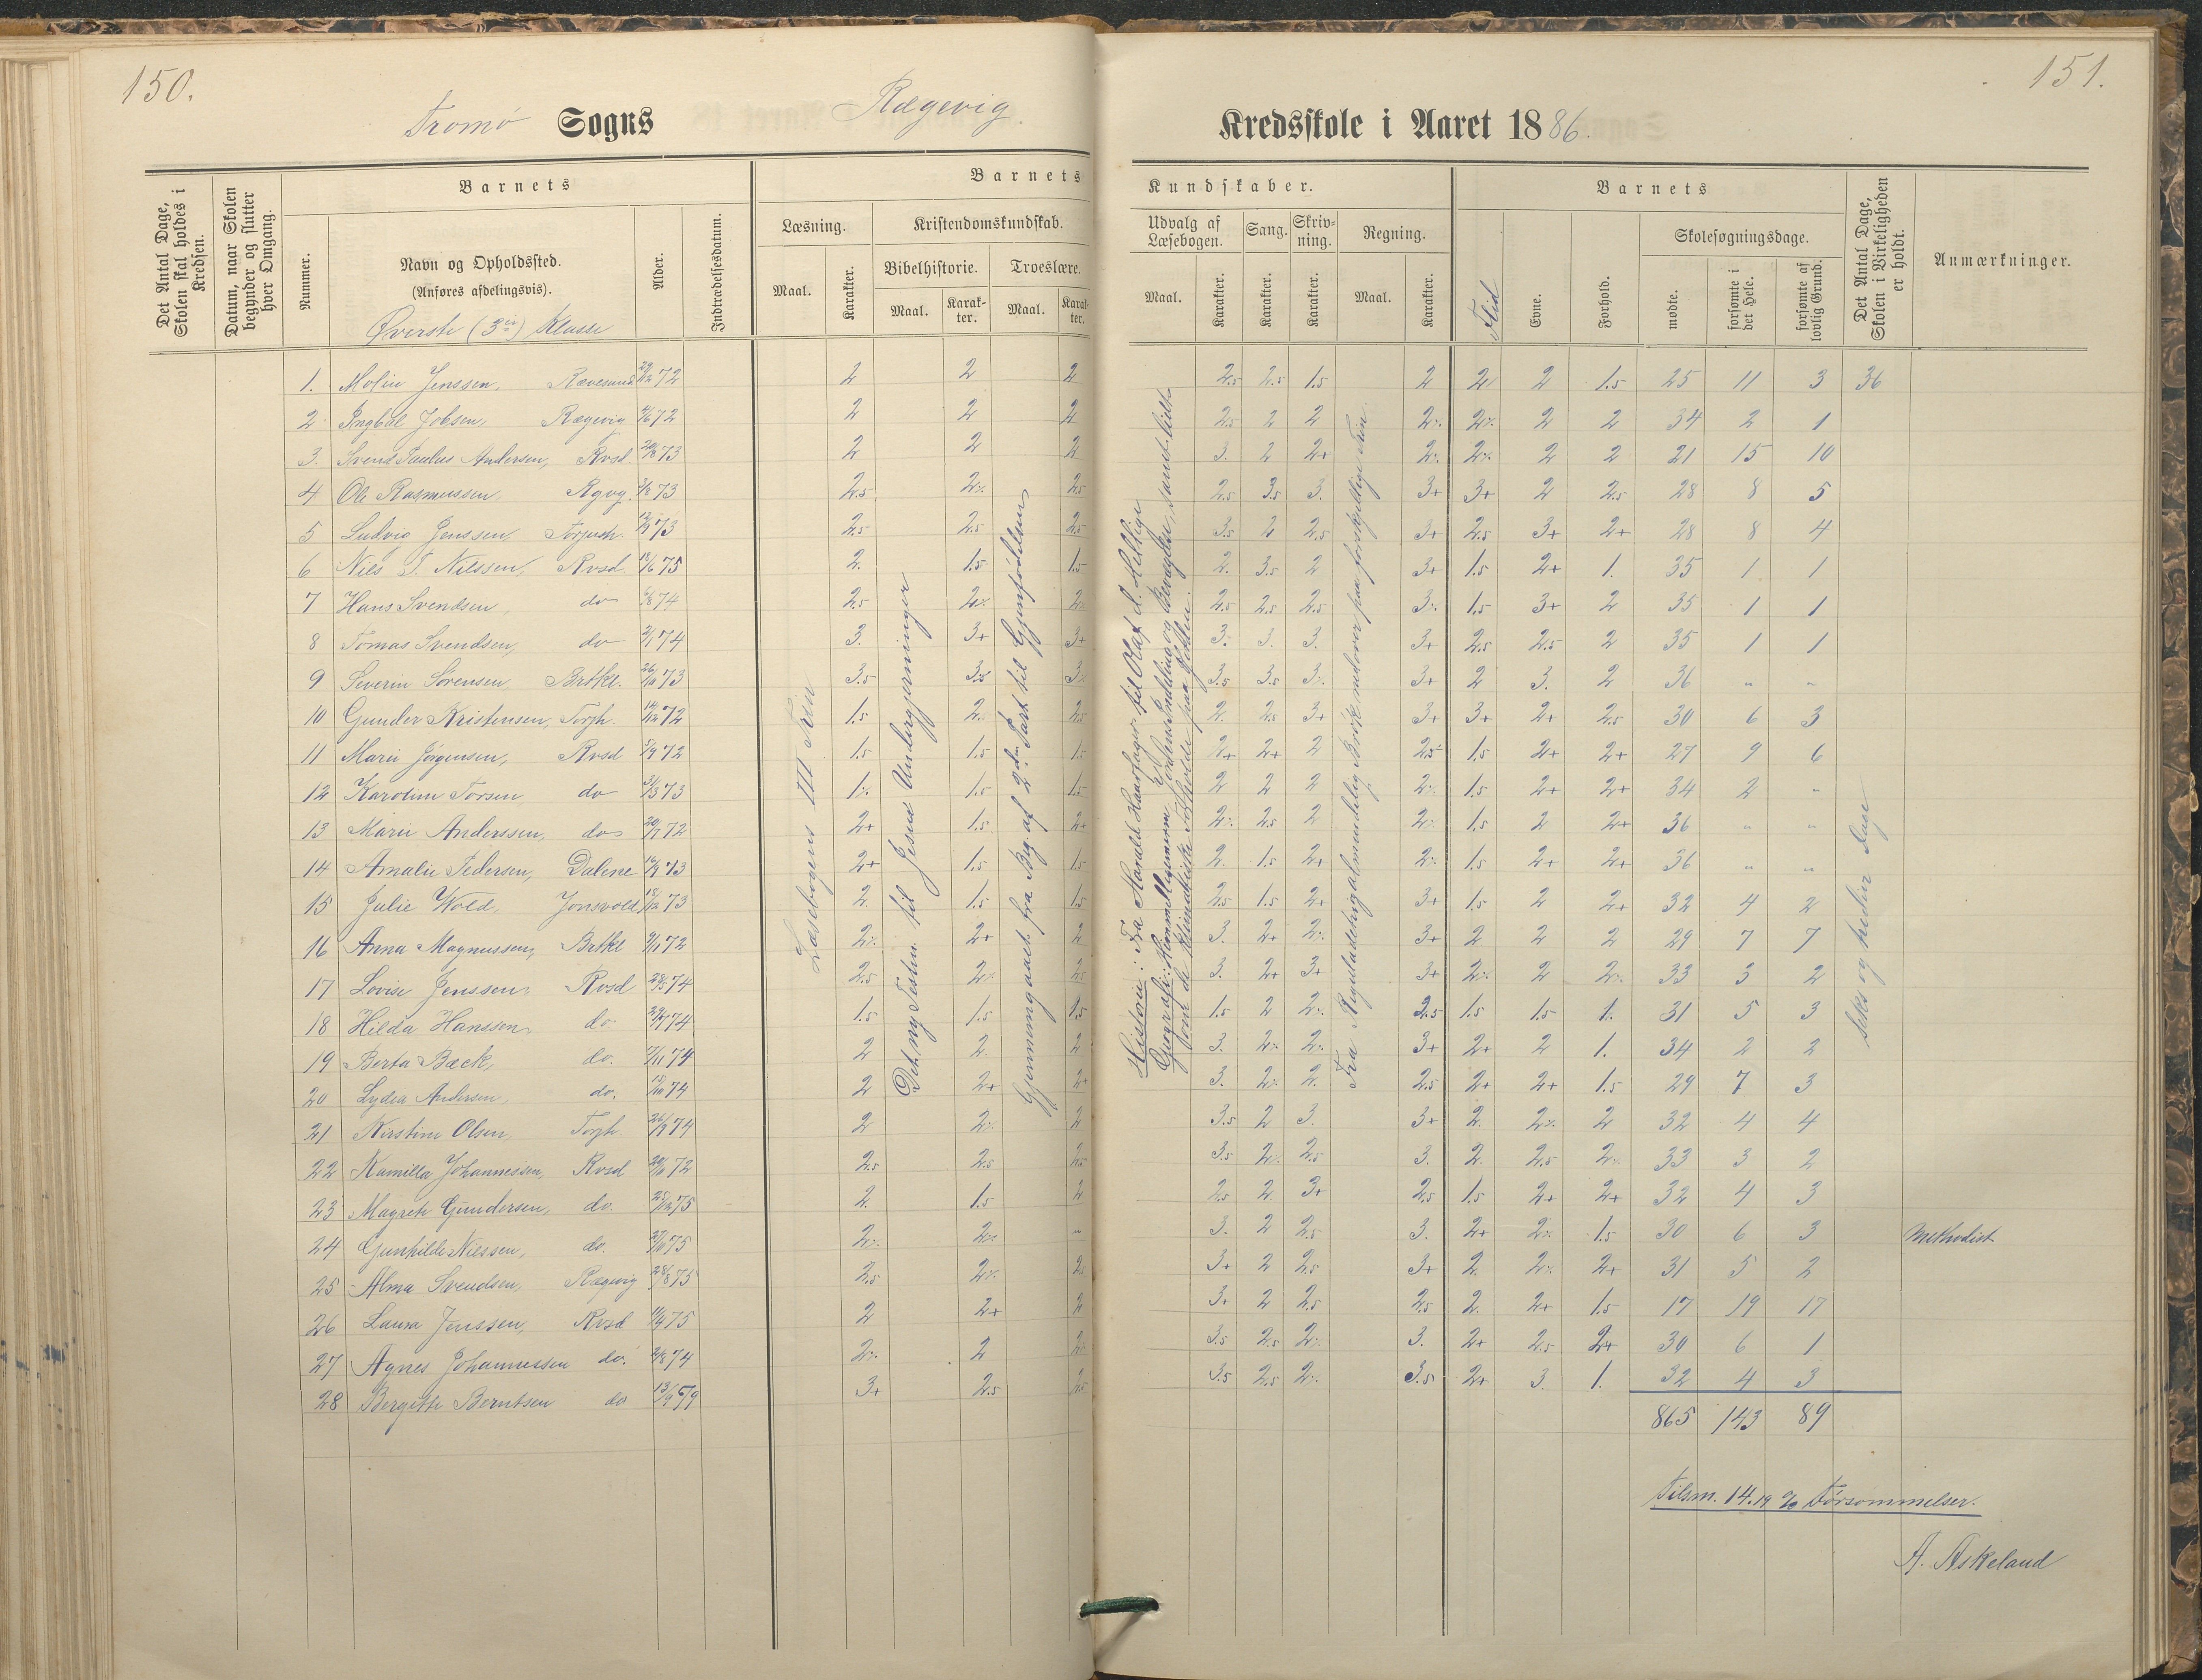 150.
151.
Tromø Sogns Rægevig Kredsskole i Aaret 1886.
Det Antal Dage, Skolen skal holdes i Kredsen.
Datum, naar Skolen begynder og slutter hver Omgang.
Barnets
Nummer.
Navn og Opholdssted.
(Anføres afdelingsvis).
Øverste (3die) Klasse
Alder.
Indtrædelsesdatum.
Barnets Kundskaber.
Læsning.
Maal.
Karakter.
Kristendomskundskab.
Bibelhistorie.
Maal.
Karakter.
Troeslære.
Maal.
Karakter.
Udvalg af Læsebogen.
Maal.
Karakter.
Sang.
Karakter.
Skrivning.
Karakter.
Regning.
Maal.
Karakter.
Barnets
Flid
Evne.
Forhold.
Skolesøgningsdage.
mødte.
forsømte i det Hele.
forsømte af lovlig Grund.
Det Antal Dage, Skolen i Virkeligheden er holdt.
Anmærkninger.
1. Molin Jenssen, Ravesund 72 2 2 2 2.5 2.5 1.5 2 2 2 1.5 25 11 3 36
2 Ingbal Jobsen, Rægevig 72 2 2 2 2.5 2 2 2÷ 2÷ 2 2 34 2 1
3. Svend Paulus Andersen, Rvsd. 73 2 2 2 3. 2 2+ 2÷ 2÷ 2 2 21 15 10
4 Ole Rasmussen, Rgvg. 73 2.5 2÷ 2.5 2.5 3.5 3. 3+ 3+ 2 2.5 28 8 5
5 Ludvig Jenssen, 73 2.5 2.5 2.5 3.5 2 2.5 3+ 2.5 3+ 2+ 28 8 4
6 Nils T. Nilssen, Rvsd. 18/6 75 2. 1.5 1.5 2. 3.5 2 3+ 1.5 2+ 1. 35 1 1
7 Hans Svendsen, do 74 2.5 2÷ 2÷ 2.5 2.5 2.5 3÷ 1.5 3+ 2 35 1 1
8 Tomas Svendsen, do 74 3. 3+ 3+ 3÷ 3. 3. 3+ 2.5 2.5 2 35 1 1
9 Severin Sørensen, Brtkl. 26/10 73 3.5 3.5 3÷ 3.5 3.5 3÷ 3+ 2 3. 2 36 " "
10 Gunder Kristensen, Torjh. 14/12 72 1.5 2÷ 2.5 2. 2.5 3+ 3+ 3+ 2+ 2.5 30 6 3
11 Marie Jørgensen, Rvsd 5/9 72 1.5 1.5 1.5 2+ 2+ 2 2.5 1.5 2+ 2+ 27 9 6
12 Karoline Torsen, do 31/3 73 1÷ 1.5 1.5 2 2 2 2÷ 1.5 2+ 2+ 34 2 "
13 Marie Anderssen, do 72 2+ 1.5 2+ 2÷ 2.5 2 2÷ 1.5 2 2+ 36 " "
14 Amalie Pedersen, Dalene 73 2+ 1.5 1.5 2. 1.5 2+ 2÷ 1.5 2+ 2+ 36 " "
15 Julie Wold, Jonsvold 73 2. 1.5 1.5 2.5 1.5 2+ 3+ 1.5 2 2+ 32 4 2
16 Anna Magnussen, Brtkl 9/11 72 2÷ 2+ 2 3. 2+ 2÷ 3+ 2 2 2 29 7 7
17 Lovise Jenssen, Rvsd 74 2.5 2÷ 2.5 3. 2+ 3+ 3+ 2÷ 2 2÷ 33 3 2
18 Hilda Hanssen, do 74 1.5 1.5 1.5 1.5 2 2÷ 2.5 1.5 1.5 1. 31 5 3
19 Berta Bæck, do. 7/11 74 2 2. 2 3. 2÷ 2÷ 3+ 2+ 2 1. 34 2 2
20 Lydia Andersen, do. 74 2 2+ 2+ 3. 2÷ 2. 2.5 2+ 2+ 1.5 29 7 3
21 Kirstine Olsen, Torjh. 26/9 74 2 2÷ 2 3.5 2 3. 3+ 2. 2÷ 2 32 4 4
22 Kamilla Johannessen, Rvsd 72 2.5 2.5 2.5 3.5 2÷ 2.5 3. 2. 2.5 2÷ 33 3 2
23 Magrete Gundersen, do. 25/12 75 2. 1.5 2 2.5 2 3+ 2.5 1.5 2+ 2+ 32 4 3
24 Gunhilde Nilssen, do. 75 2÷ 2÷ " 3. 2 2.5 3. 2+ 2÷ 1.5 30 6 3 Methodist
25 Alma Svendsen, Rægevig 28/8 75 2.5 2÷ 2. 3+ 2 2.5 3+ 2. 2÷ 2+ 31 5 2
26 Laura Jenssen, Rvsd 75 2 2+ 2 3+ 2 2.5 2.5 2. 2+ 1.5 17 19 17
27 Agnes Johannessen do. 74 2÷ 2 2÷ 3.5 2.5 2÷ 3. 2+ 2.5 2+ 30 6 1
28 Bergitte Berntsen do 13/9 3+ 2.5 2.5 3.5 2.5 2÷ 3.5 2+ 3. 1. 32 4 3
865 143 89
Læsebogens III Trin
Det ny Testm. til Jesus Undergjerninger
Gjennemgaaet fra Beg. af 2den Part til Gjenfødelsen
Historie: Fra Harald Haarfager til Olaf d. Hellige
Geografi: Himmellegemerne, Jordens Inddeling og Bevægelse, samt lidt
om de klimatiske Forholde paa Jorden.
Fra Regeladetri almindelig Brøk nedover paa forskjellige Trin.
seks og tredive Dage
Tilsm. 14.19 % Forsømmelser.
A. Askeland